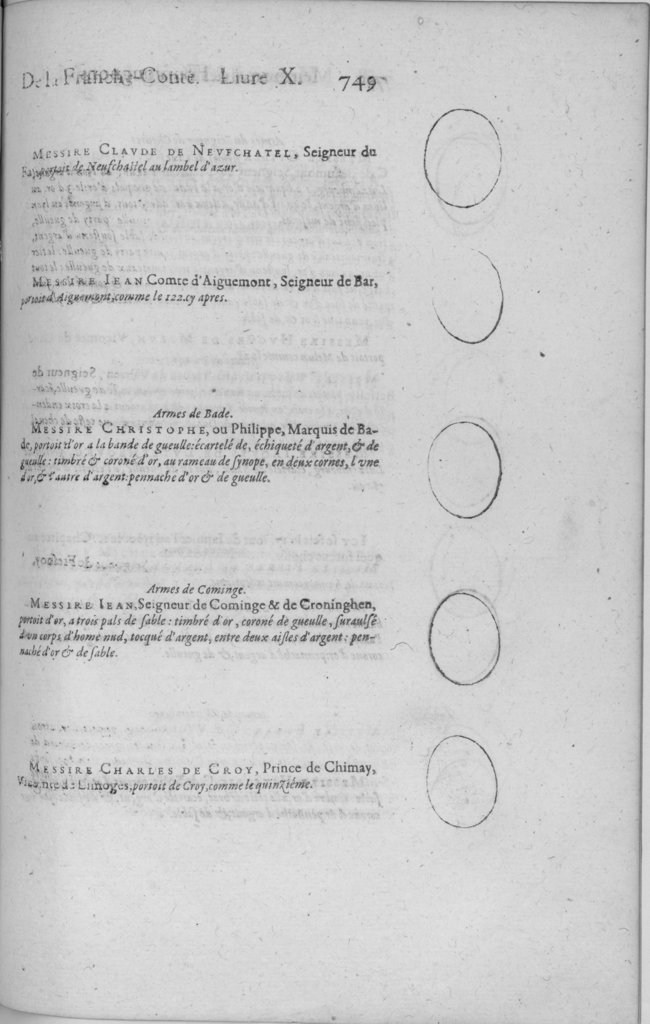 De la Franche-Conté. Liure X. 749
MESSIRE CLAVDE DE NEVFCHATEL, Seigneur du
portoit de Neufchastel au lambel d'azur.
MESSIRE IEAN Comte d'Aiguemont, Seigneur de Bar,
portoit d'Aiguemont, comme le 122. cy apres.
Armes de Bade.
MESSIRE CHRISTOPHE, ou Philippe, Marquis de Ba-
de, portoit d'or a la bande de gueulle: écartelé de, échiqueté d'argent, & de
gueulle: timbré & coroné d'or, au rameau de synope, en deux cornes, l'vne
d'or, & l'autre d'argent: pennaché d'or & de gueulle.
Armes de Cominge.
MESSIRE IEAN, Seigneur de Cominge & de Croninghen,
portoit d'or, a trois pals de sable: timbré d'or, coroné de gueulle, suraulsé
d'vn corps d'home nud, tocqué d'argent, entre deux aisles d'argent: pen-
naché d'or & de sable.
MESSIRE CHARLES DE CROY, Prince de Chimay,
Viconte de Limoges, portoit de Croy, comme le quinziéme.